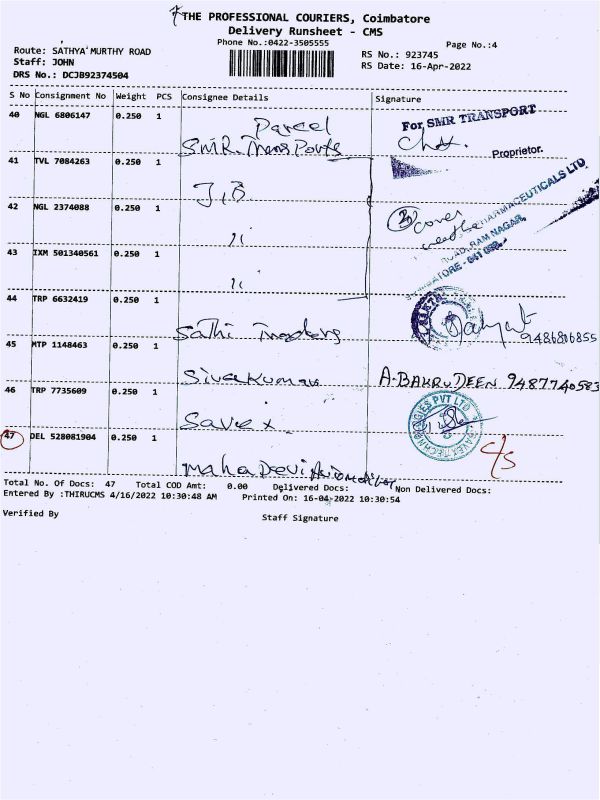 THE PROFESSIONAL COURIERS, Coimbatore
Delivery Runsheet - CMS
Phone No.:0422-3505555
Page No.:4
Route: SATHYA MURTHY ROAD
Staff: JOHN
DRS No.: DCJB92374504
RS No.: 923745
RS Date: 16-Apr-2022
S No Consignment No Weight PCS Consignee Details Signature
40 NGL 6806147 0.250 1 Parcel
SMR. Trans Ports
For SMR TRANSPORT
Proprietor.
41 TVL 7084263 0.250 1
J.B
42 NGL 2374088 0.250 1
cover
PHARMACEUTICALS LTD
RAM NAGAR,
43 IXM 501340561 0.250 1
44 TRP 6632419 0.250 1
Sathi Traders
9486816855
45 MTP 1148463 0.250 1
Sivakumar A-BAKRUDEEN 9487740583
46 TRP 7735609 0.250 1
Savex
PVT LTD
47 DEL 528081904 0.250 1
Maha Devi
c/s
Total No. Of Docs: 47 Total COD Amt: 0.00 Delivered Docs: Non Delivered Docs:
Entered By :THIRUCMS 4/16/2022 10:30:48 AM Printed On: 16-04-2022 10:30:54
Verified By
Staff Signature